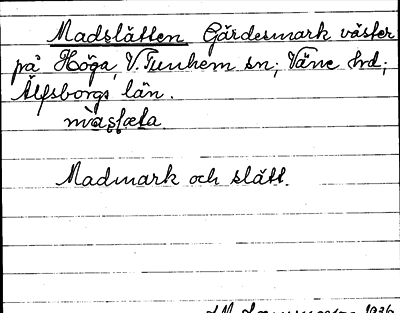 Madslätten Gärdesmark väster
på Höga, V. Tunhem sn; Väne hd;
Älfsborgs län.
Madmark och slätt.
1936